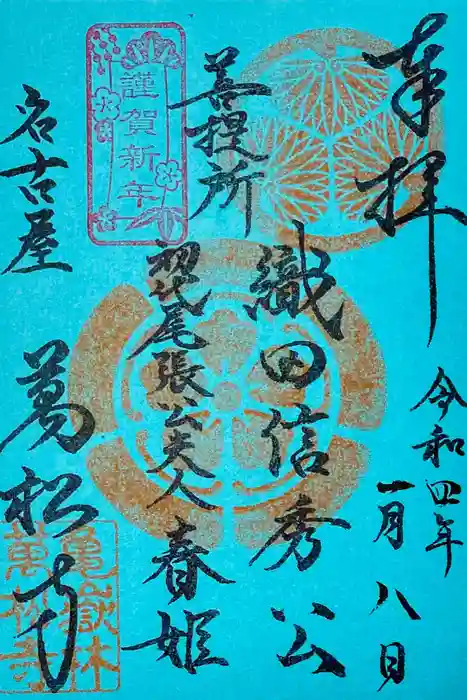 奉拝
令和四年
一月八日
菩提所
織田信秀公
初代尾張公夫人 春姫
謹賀新年
名古屋
萬松寺
亀嶽林
萬松寺